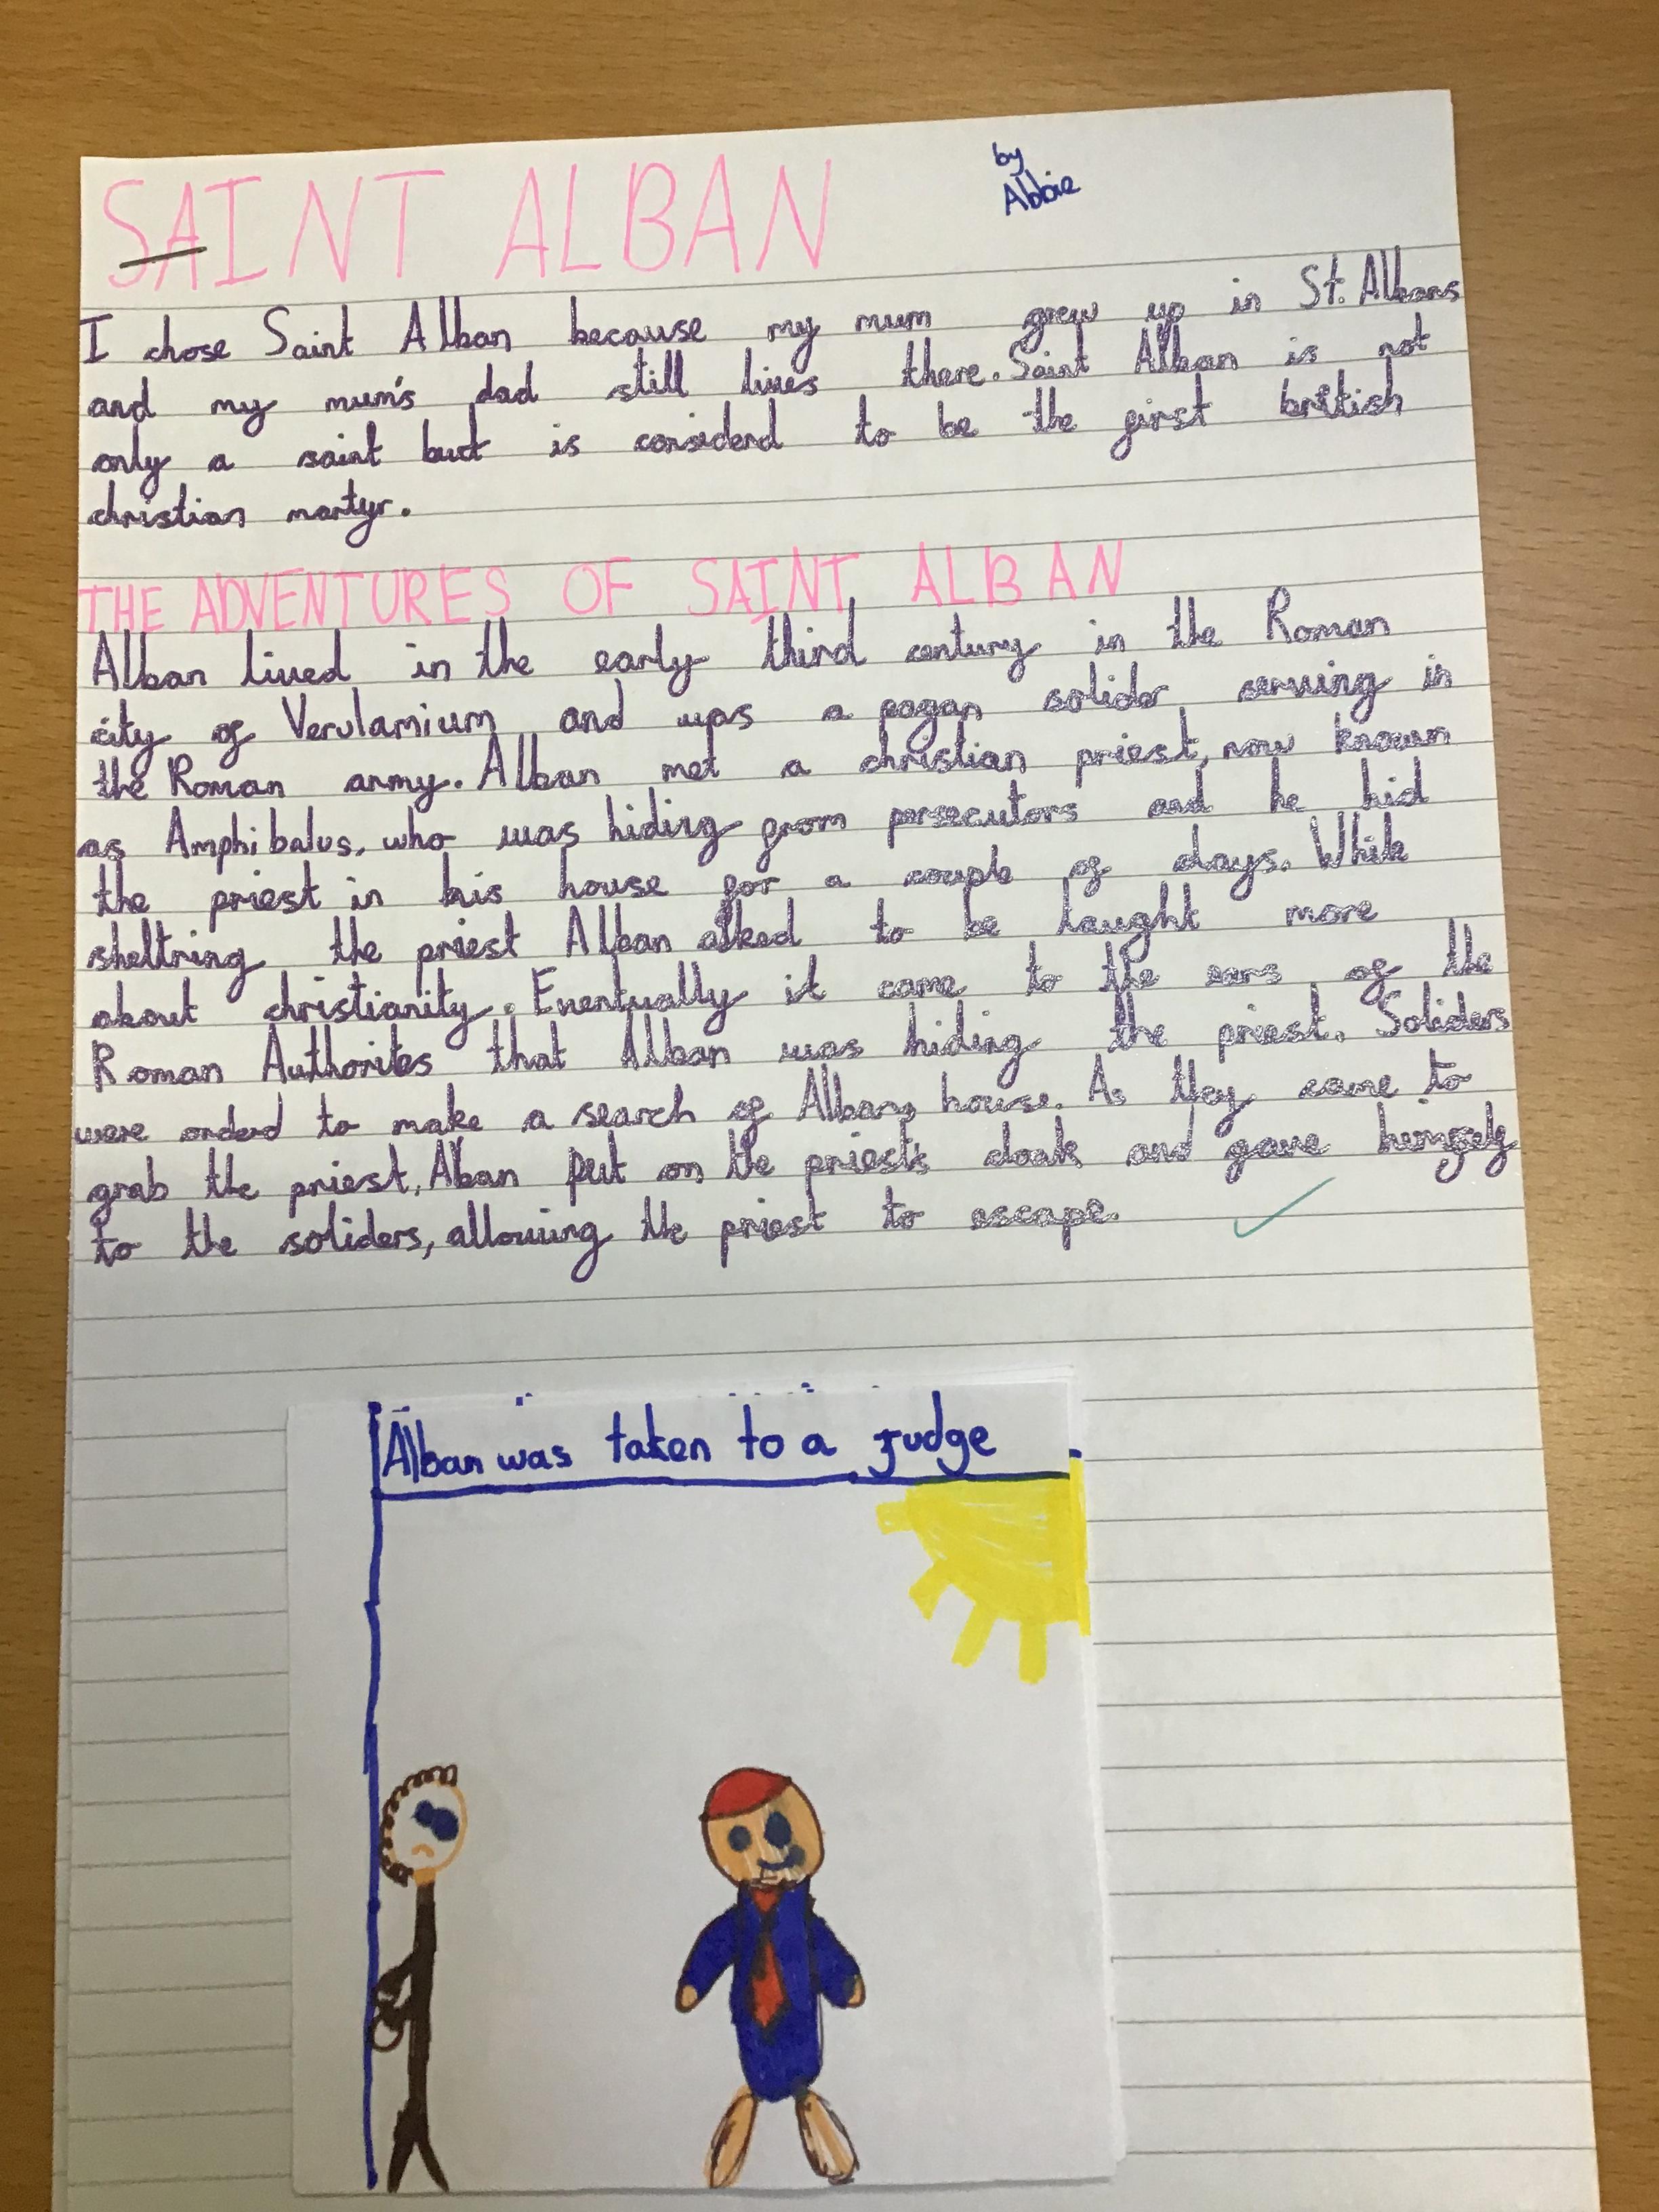 SAINT ALBAN
by
Abbie
I chose Saint Alban because my mum grew up in St. Albans
and my mum's dad still lives there. Saint Alban is not
only a saint but is considerd to be the first british
christian martyr.
THE ADVENTURES OF SAINT ALBAN
Alban lived in the early third century in the Roman
city of Verulamium and was a pagan solider serving in
the Roman army. Alban met a christian priest, now known
as Amphibalus, who was hiding from persecutors and he hid
the priest in his house for a couple of days. While
sheltring the priest Alban asked to be taught more
about christianity. Eventually it came to the ears of the
Roman Authorites that Alban was hiding the priest. Soliders
were orderd to make a search of Albans house. As they came to
grab the priest, Alban put on the priest's cloak and gave himself
to the soliders, allowing the priest to escape.
Alban was taken to a judge